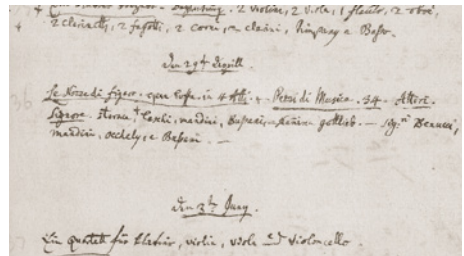 Begleitung. 2 violini, 2 viole, 1 flauto, 2 oboe,
2 clarinetti, 2 fagotti, 2 corni, 2 clarini, timpany e Basso.
den 29t Aprill
Le Nozze di figaro. opera buffa. in 4 Atti. Pezzi di Musica. 34. Attori.
Signore. storace, laschi, mandini, bussani, e Nanina gottlieb. — Sig:ri Benucci,
mandini, occhely, e Bussani. —
den 3t Juny.
Ein quartett für klavier, violin, viola und violoncello.